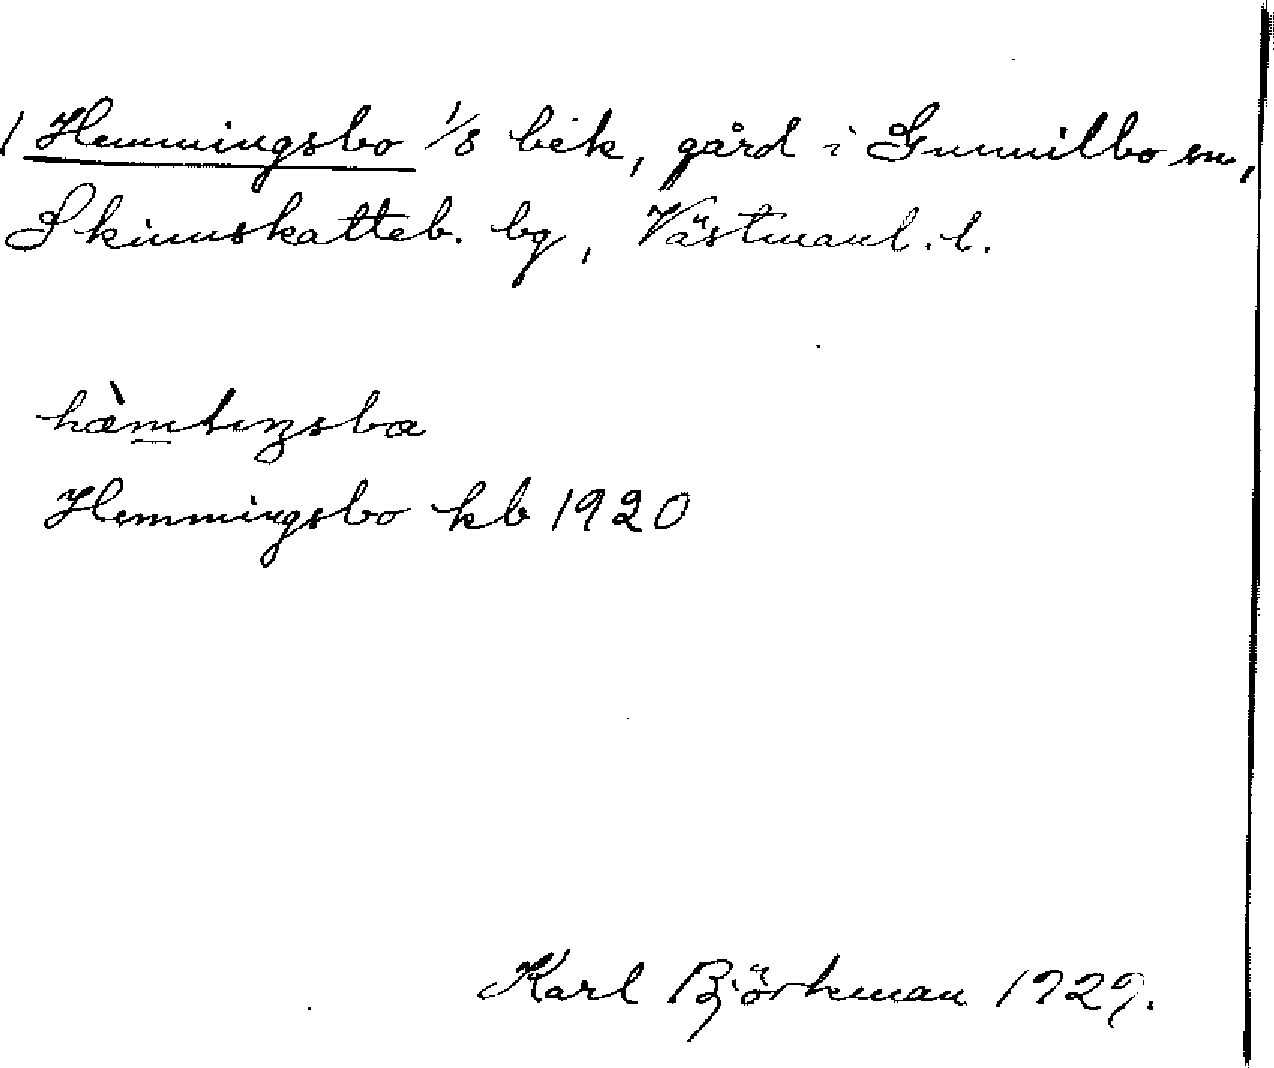 1 Hemmingsbo 1/8 bék, gård i Gunnilbo sn,
Skinnskatteb. bg, Västmanl. l.
Hemmingsbo kb 1920
Karl Björkman 1929.